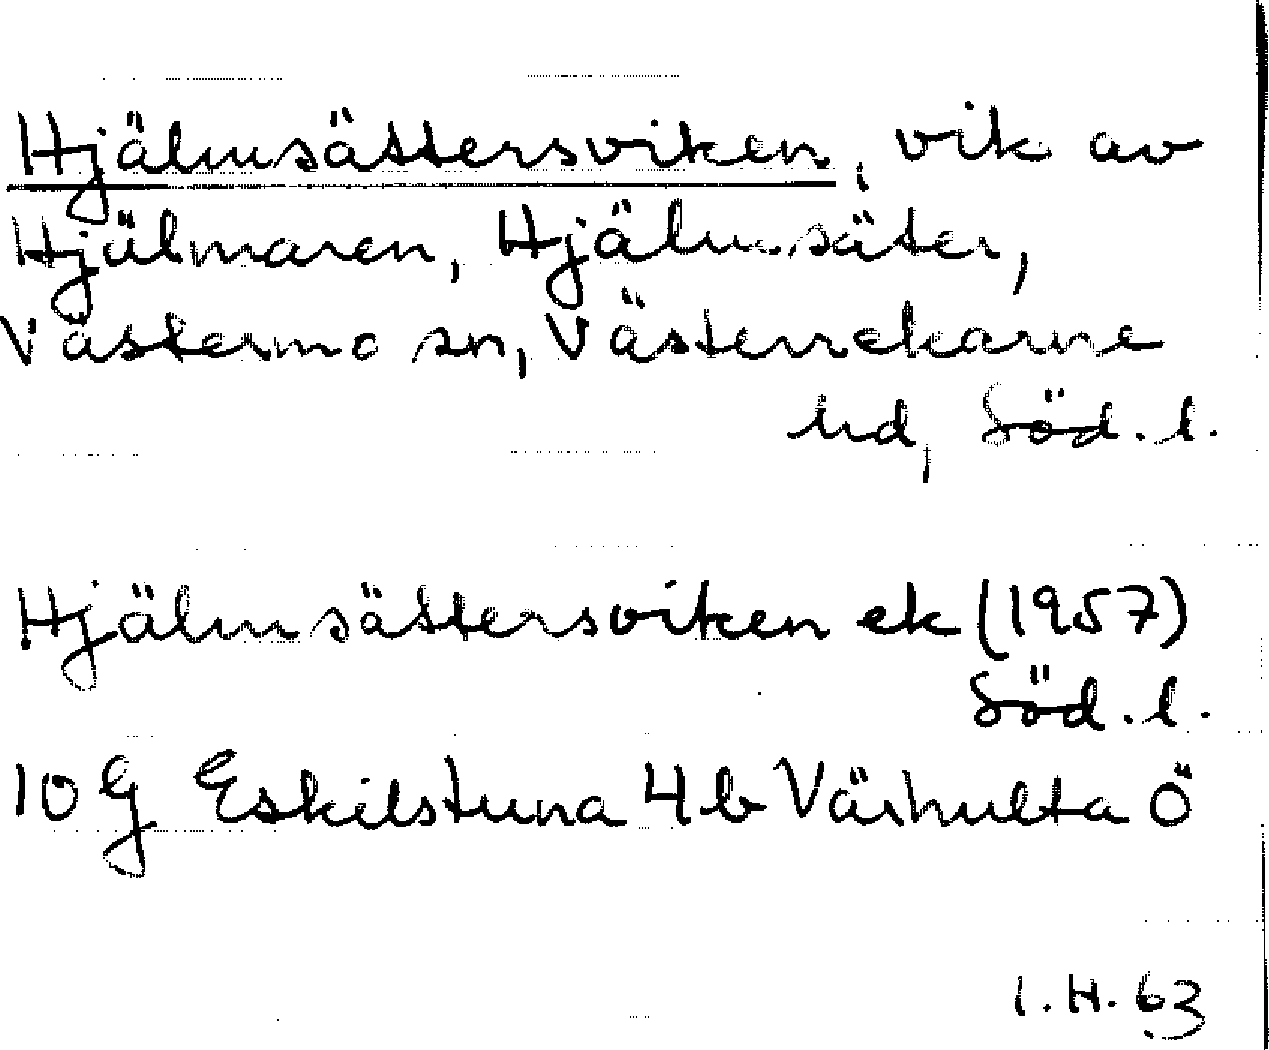 Hjälmsättersviken, vik av
Hjälmaren, Hjälmsäter,
Västermo sn, Västerrekarne
hd, Söd. l.
Hjälmsättersviken ek (1957)
Söd. l.
10 G Eskilstuna 4 b Värhulta Ö
I. H. 63